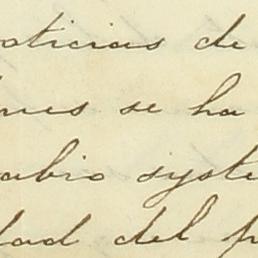 oticias de
nes se ha
abio syste
dad del p